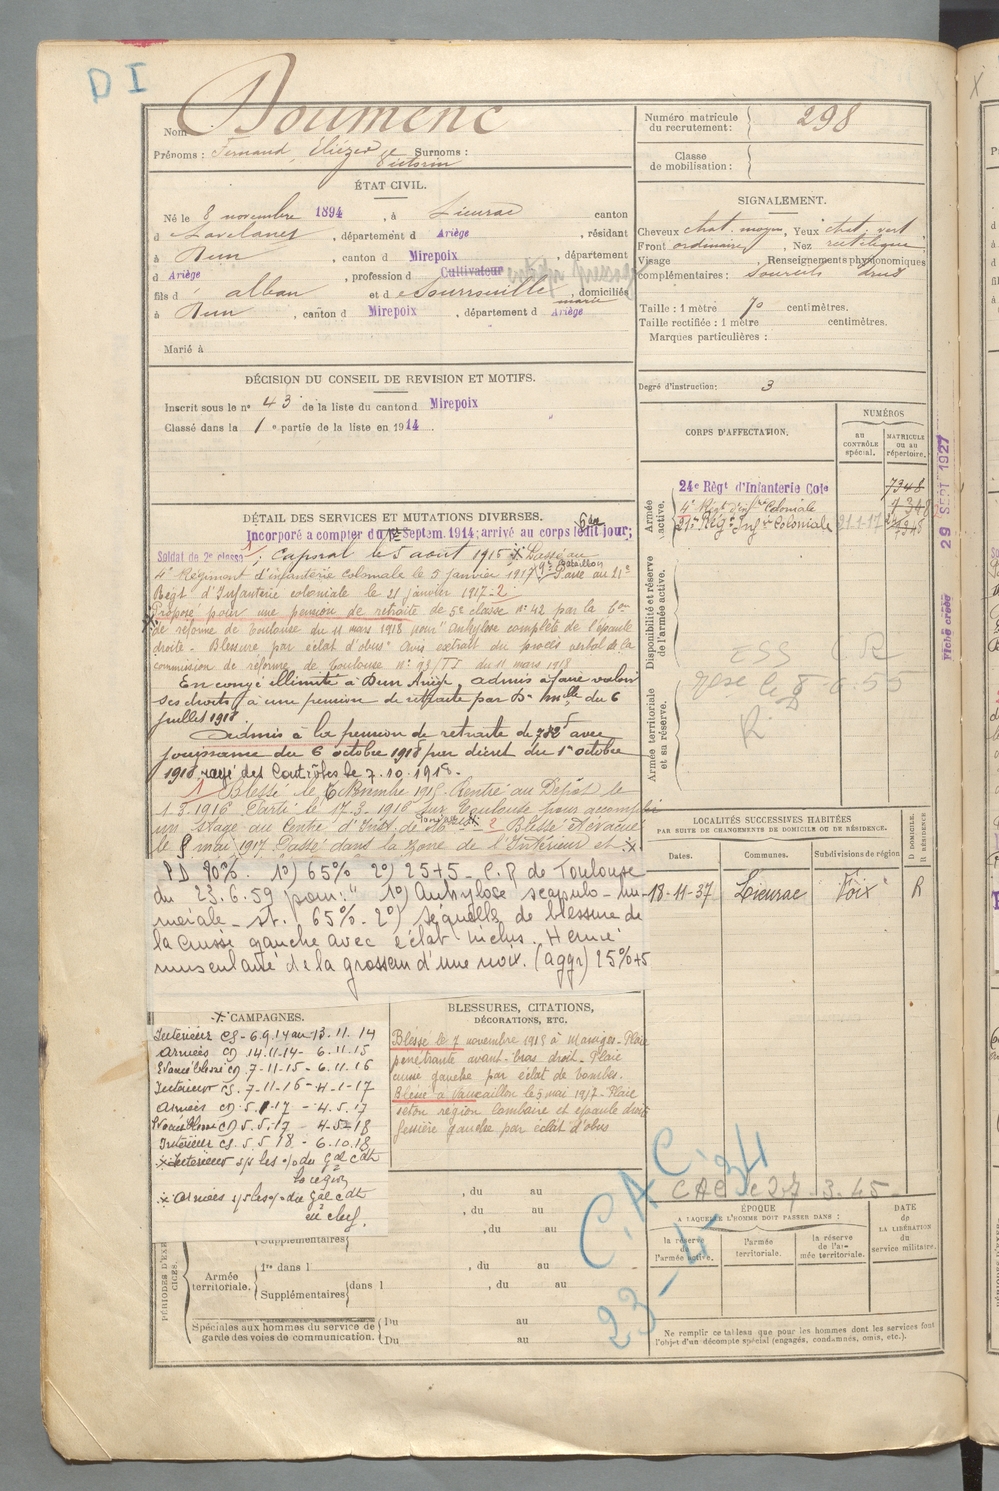 D I
Nom Doumenc
Prénoms : Fernand, Eliézer Victorin Surnoms :
ÉTAT CIVIL.
Né le 8 novembre 1894, à Lieurac canton
d Lavelanet, département d Ariège, résidant
à Dun, canton d Mirepoix, département
d Ariège, profession d Cultivateur
fils d alban et de Sourrouille Marie, domiciliés
à Dun, canton d Mirepoix, département d Ariège
Marié à
DÉCISION DU CONSEIL DE REVISION ET MOTIFS.
Inscrit sous le n° 43 de la liste du canton d Mirepoix
Classé dans la 1e partie de la liste en 1914
DÉTAIL DES SERVICES ET MUTATIONS DIVERSES.
Incorporé a compter du 6 Septem. 1914; arrivé au corps ledit jour;
Soldat de 2e classe; Caporal le 5 aout 1915; Passé au
4e Régiment d'infanterie coloniale le 5 janvier 1917 9e Bataillon Passé au 21e
Régt d'Infanterie coloniale le 21 janvier 1917 2
Proposé pour une pension de retraite de 5e classe n° 42 par la
de réforme de Toulouse du 11 mars 1918 pour "Ankylose complète de l'épaule
droite - Blessure par éclat d'obus" Avis extrait du procès verbal de la
commission de réforme de Toulouse n° 93/TT du 11 mars 1918
En congé illimité à Dun Ariège, admis à faire valoir
ses droits à une pension de retraite par Don mlle du 6
juillet 1918.
Admis à la pension de retraite de 782f avec
jouissance du 6 octobre 1918 par décret du 1er octobre
1918 rayé des Contrôles le 7.10.1918.
1 Blessé le Novembre 1915. Rentré au Dépôt le
1.3.1916. Parti le 17.3.1916 sur Toulouse pour accomplir
un Stage au Centre d'Inst. de 2 Blessé Evacué
le 8 mai 1917 Passé dans la zone de l'Intérieur et
PD 80%. 1°) 65% 2°) 25+5 - C.R de Toulouse
du 23.6.59 pour: " 1°) Ankylose scapulo-hu-
mérale - dt. 65% - 2°) séquelle de blessure de
la cuisse gauche avec éclat inclus. Hernie
musculaire de la grosseur d'une noix. (aggr) 25%+5
CAMPAGNES.
Intérieur CS - 6.9.14 au 13.11.14
Armées CD 14.11.14 - 6.11.15
Evacué blessé CD 7-11-15 - 6.11.16
Intérieur CS. 7-11-16 - 4-1-17
Armées CD. 5.1.17 - 4.5.17
Evacué blessé CD 5.5.17 - 4-5-18
Intérieur CS. 5.5.18 - 6.10.18
Intérieur s/s les o/ du Gal Cdt
la région
Armées s/s les o/ du Gal Cdt
en chef.
BLESSURES, CITATIONS,
DÉCORATIONS, ETC.
Blessé le 7 novembre 1915 à Massiges - Plaie
pénétrante avant-bras droit - Plaie
cuisse gauche par éclat de bombes.
Blessé à Vauxaillon le 5 mai 1917 - Plaie
séton région lombaire et épaule droite
fessière gauche par éclat d'obus
, du au
, du au
, du au
PÉRIODES D'EXERCICES.
Supplémentaires
Armée territoriale.
1re dans l , du au
Supplémentaires dans l , du au
Spéciales aux hommes du service de
garde des voies de communication.
Du au
Du au
Numéro matricule
du recrutement : 298
Classe
de mobilisation :
SIGNALEMENT.
Cheveux chat. moyen, Yeux chat. vert
Front ordinaire, Nez rectiligne
Visage Renseignements physionomiques
complémentaires : Sourcils drus
Taille : 1 mètre 70 centimètres.
Taille rectifiée : 1 mètre centimètres.
Marques particulières :
Degré d'instruction : 3
CORPS D'AFFECTATION.
NUMÉROS
au CONTRÔLE spécial.
MATRICULE ou au répertoire.
Armée active.
24e Régt d'Infanterie Cole 7348
4e Régt d'Infrie Coloniale
21e Régt Infrie Coloniale 21-1-17
Disponibilité et réserve
de l'armée active.
Armée territoriale
et sa réserve.
R D
29 SEPT 1927
Fiche créée
LOCALITÉS SUCCESSIVES HABITÉES
PAR SUITE DE CHANGEMENTS DE DOMICILE OU DE RÉSIDENCE.
Dates. Communes. Subdivisions de région
D DOMICILE. R RÉSIDENCE
18-11-37 Lieurac Foix R
CAC le 27.3.45
C.A.C. 34
23
ÉPOQUE
A LAQUELLE L'HOMME DOIT PASSER DANS :
la réserve de l'armée active.
l'armée territoriale.
la réserve de l'armée territoriale.
DATE de LA LIBÉRATION du service militaire.
Ne remplir ce tableau que pour les hommes dont les services font
l'objet d'un décompte spécial (engagés, condamnés, omis, etc.).